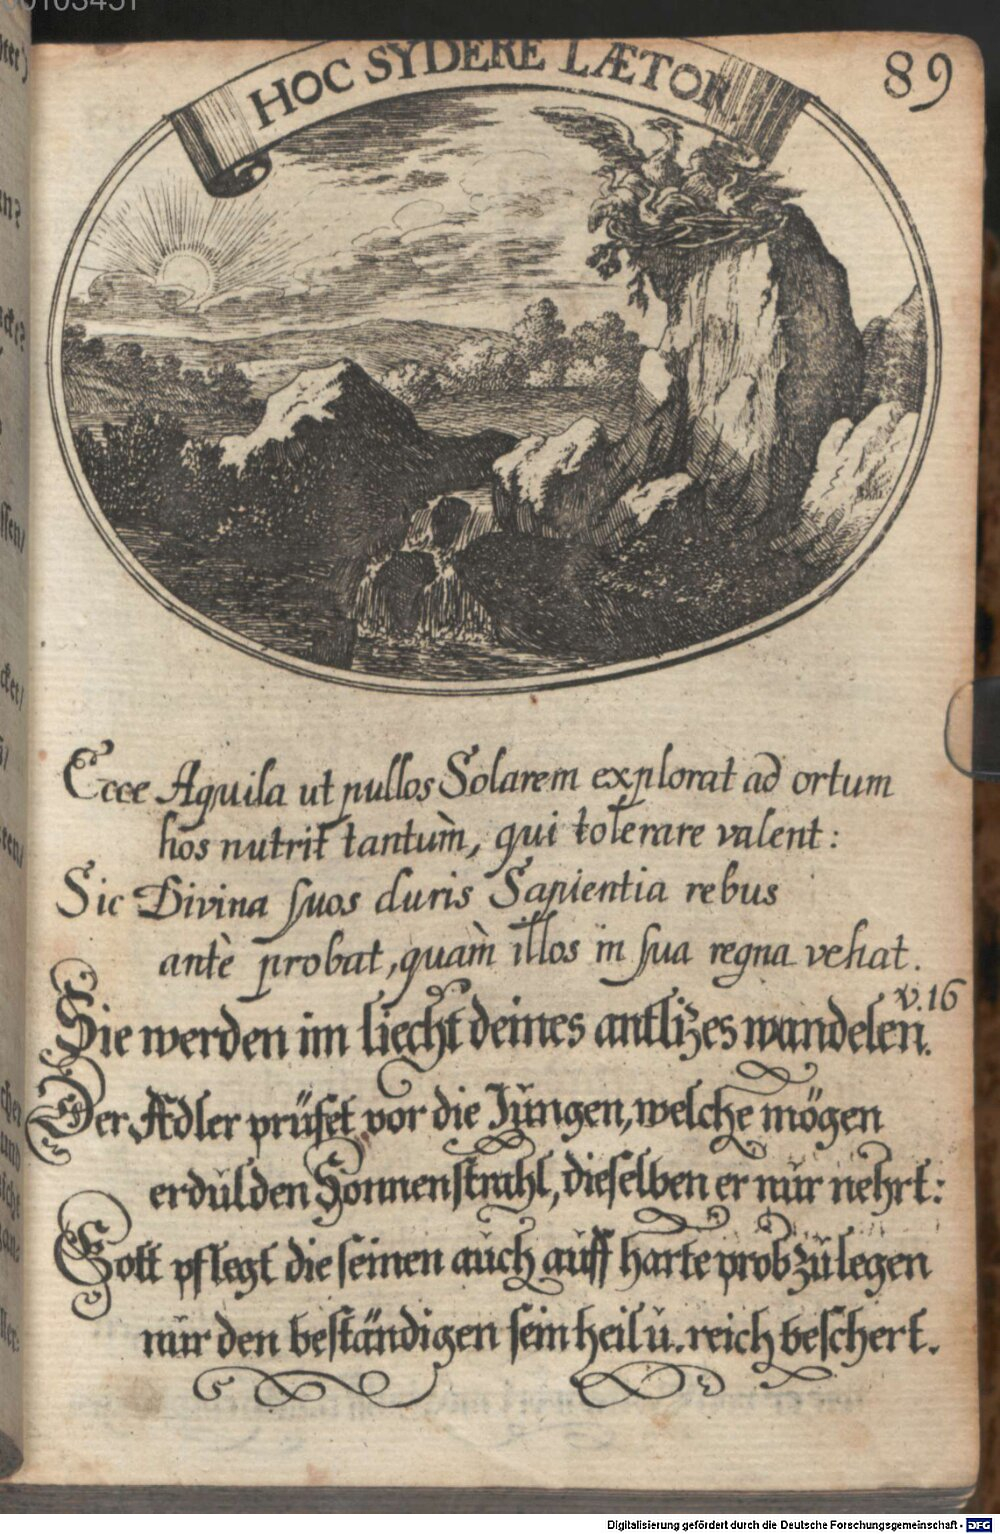 00103451
HOC SYDERE LÆTOR
89
Ecce Aquila ut pullos Solarem explorat ad ortum
hos nutrit tantum̀, qui tolerare valent:
Sic Divina suos duris Sapientia rebus
antè probat, quam̀ illos in sua regna vehat.
v. 16
Sie werden im liecht deines antlizes wandelen.
Der Adler prüfet vor die Jungen, welche mögen
erdulden Sonnenstrahl, dieselben er nur nehrt:
Gott pflegt die seinen auch auff harte prob zu legen
nur den beständigen sein heil u. reich beschert.
Digitalisierung gefördert durch die Deutsche Forschungsgemeinschaft - DFG